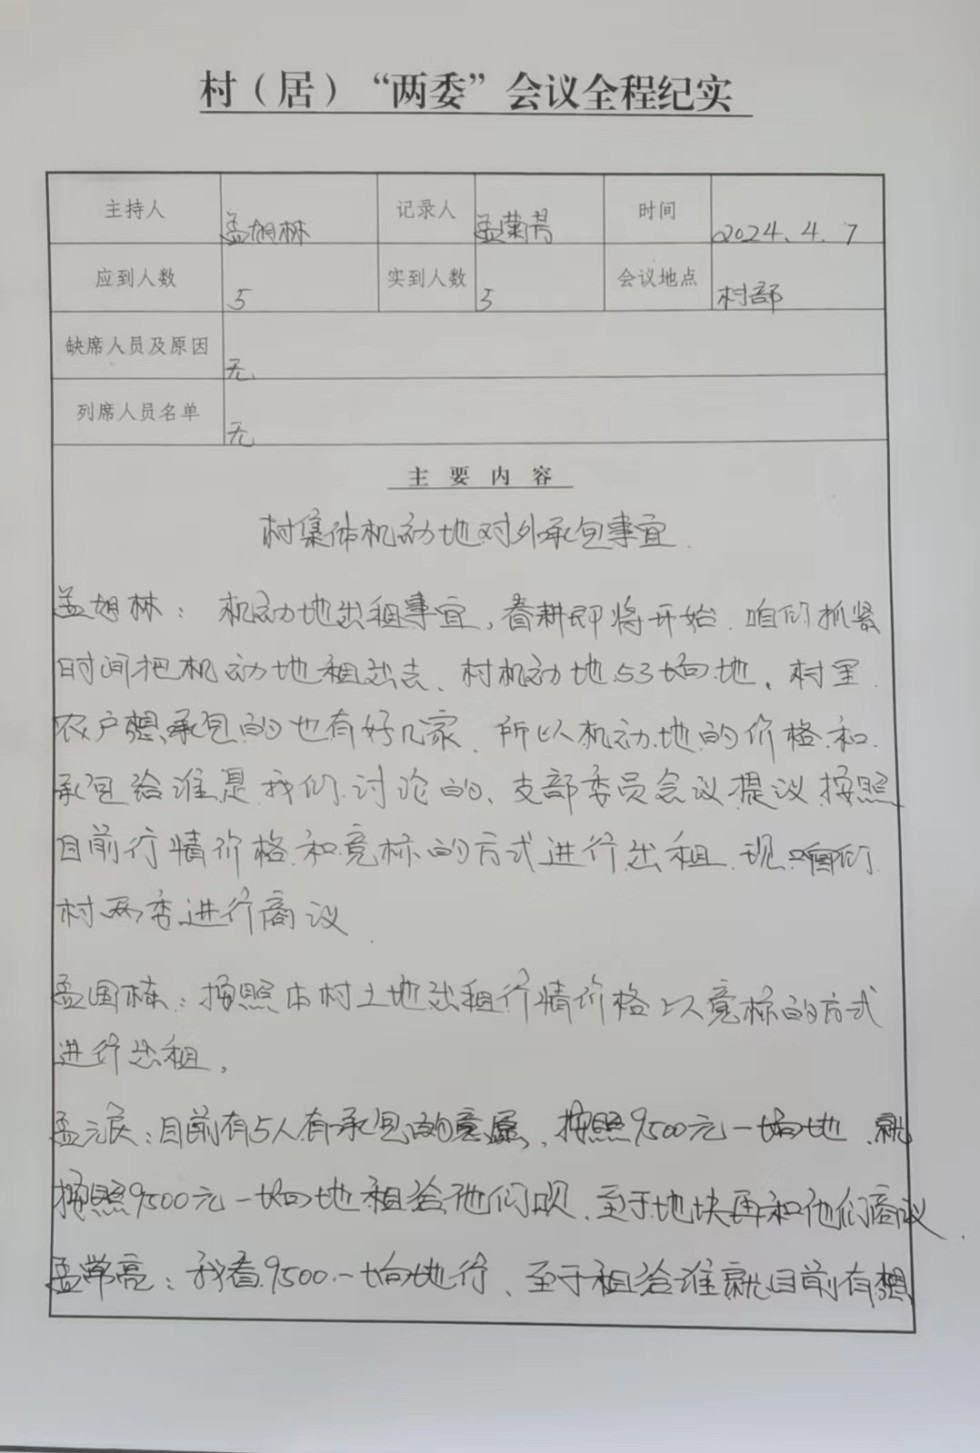 村（居）“两委”会议全程纪实
主持人 孟旭林 记录人 孟菊芳 时间 2024.4.7
应到人数 5 实到人数 5 会议地点 村部
缺席人员及原因 无
列席人员名单 无
主要内容
村集体机动地对外承包事宜.
孟旭林：机动地出租事宜，春耕即将开始.咱们抓紧
时间把机动地租出去、村机动地53垧地，村里
农户想承包的也有好几家、所以机动地的价格和
承包给谁是我们讨论的、支部委员会议提议按照
目前行情价格和竞标的方式进行出租.现咱们
村两委进行商议.
孟国栋：按照本村土地出租行情价格以竞标的方式
进行出租，
孟元庆：目前有5人有承包的意愿、按照9500元一垧地、就
按照9500元一垧地租给他们呗、至于地块再和他们商议.
孟常亮：我看9500一垧地行、至于租给谁就目前有想